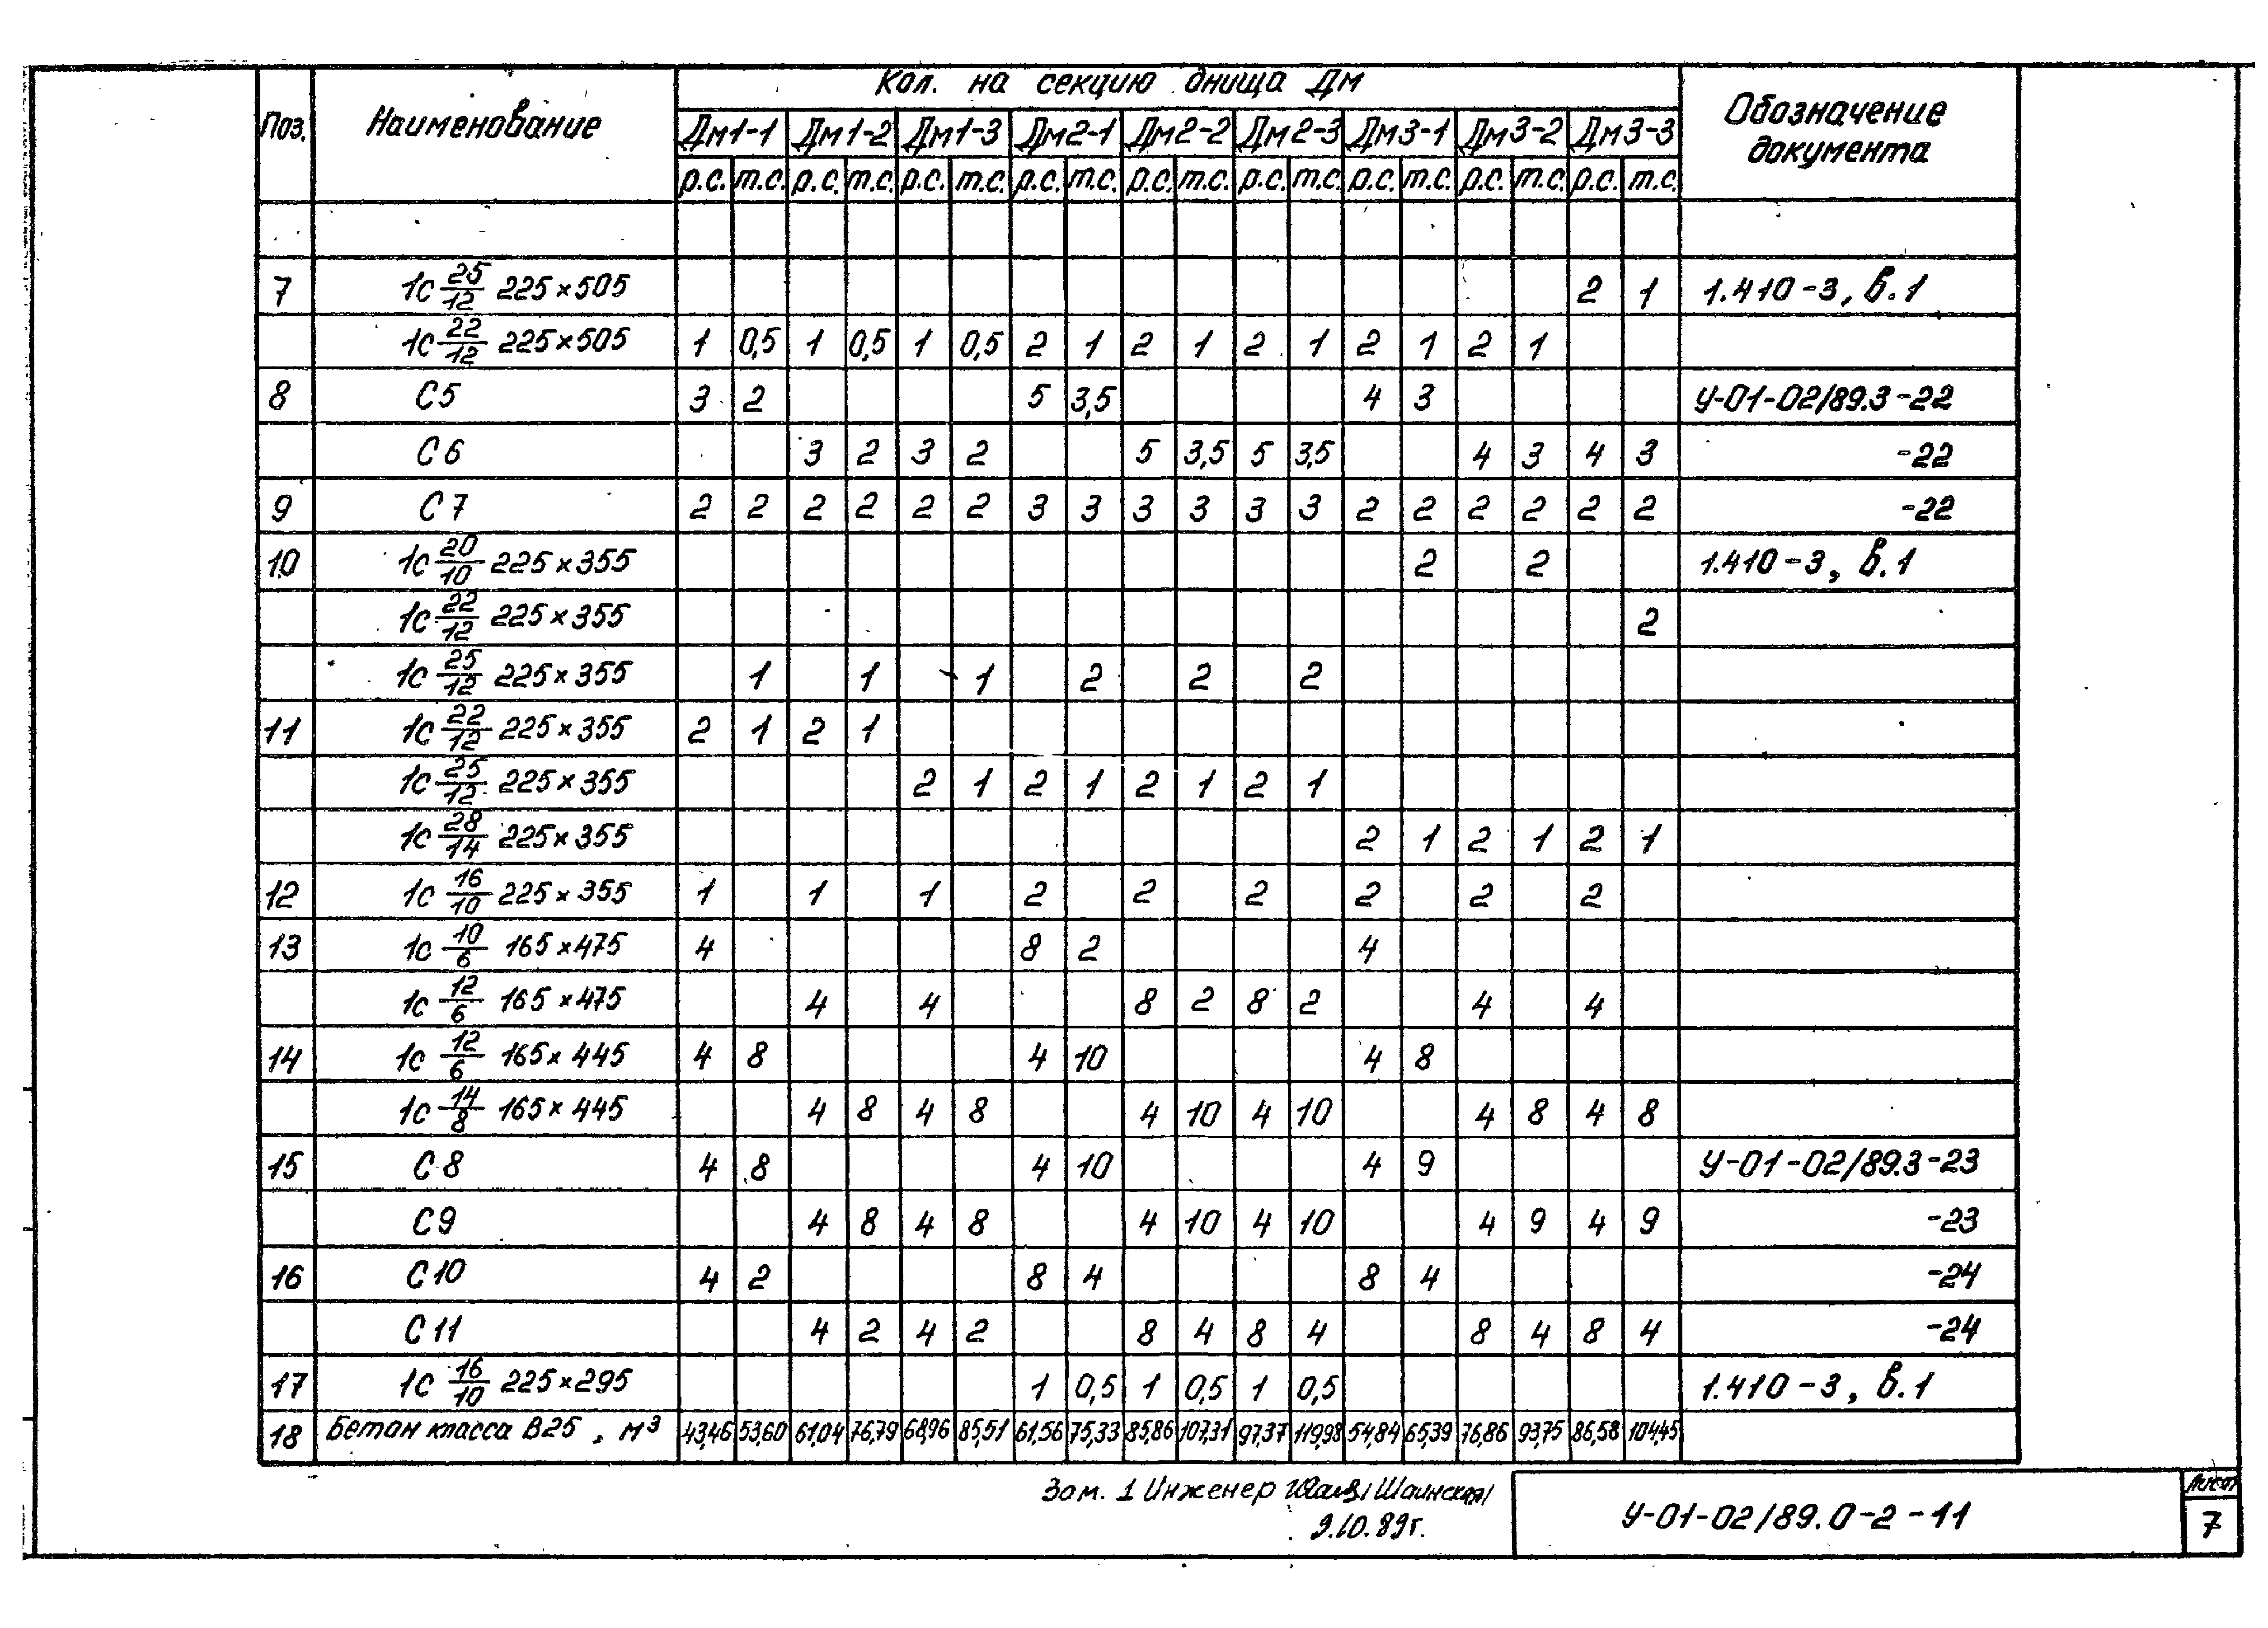 Поз. Наименование Кол. на секцию днища Дм Обозначение документа
Дм1-1 Дм1-2 Дм1-3 Дм2-1 Дм2-2 Дм2-3 Дм3-1 Дм3-2 Дм3-3
р.с. т.с. р.с. т.с. р.с. т.с. р.с. т.с. р.с. т.с. р.с. т.с. р.с. т.с. р.с. т.с. р.с. т.с.
7 1с 25/12 225×505 2 1 1.410-3, в.1
1с 22/12 225×505 1 0,5 1 0,5 1 0,5 2 1 2 1 2 1 2 1 2 1
8 С5 3 2 5 3,5 4 3 У-01-02/89.3-22
С6 3 2 3 2 5 3,5 5 3,5 4 3 4 3 -22
9 С7 2 2 2 2 2 2 3 3 3 3 3 3 2 2 2 2 2 2 -22
10 1с 20/10 225×355 2 2 1.410-3, в.1
1с 22/12 225×355 2
1с 25/12 225×355 1 1 1 2 2 2
11 1с 22/12 225×355 2 1 2 1
1с 25/12 225×355 2 1 2 1 2 1 2 1
1с 28/14 225×355 2 1 2 1 2 1
12 1с 16/10 225×355 1 1 1 2 2 2 2 2 2
13 1с 10/6 165×475 4 8 2 4
1с 12/6 165×475 4 4 8 2 8 2 4 4
14 1с 12/6 165×445 4 8 4 10 4 8
1с 14/8 165×445 4 8 4 8 4 10 4 10 4 8 4 8
15 С8 4 8 4 10 4 9 У-01-02/89.3-23
С9 4 8 4 8 4 10 4 10 4 9 4 9 -23
16 С10 4 2 8 4 8 4 -24
С11 4 2 4 2 8 4 8 4 8 4 8 4 -24
17 1с 16/10 225×295 1 0,5 1 0,5 1 0,5 1.410-3, в.1
18 Бетон класса В25, м³ 43,46 53,60 61,04 76,79 68,96 85,51 61,56 75,33 85,86 107,31 97,37 119,98 54,84 65,39 76,86 93,75 86,58 104,45
Зам. 1 Инженер /Шаинская/
9.10.89г.
У-01-02/89.0-2-11
Лист
7